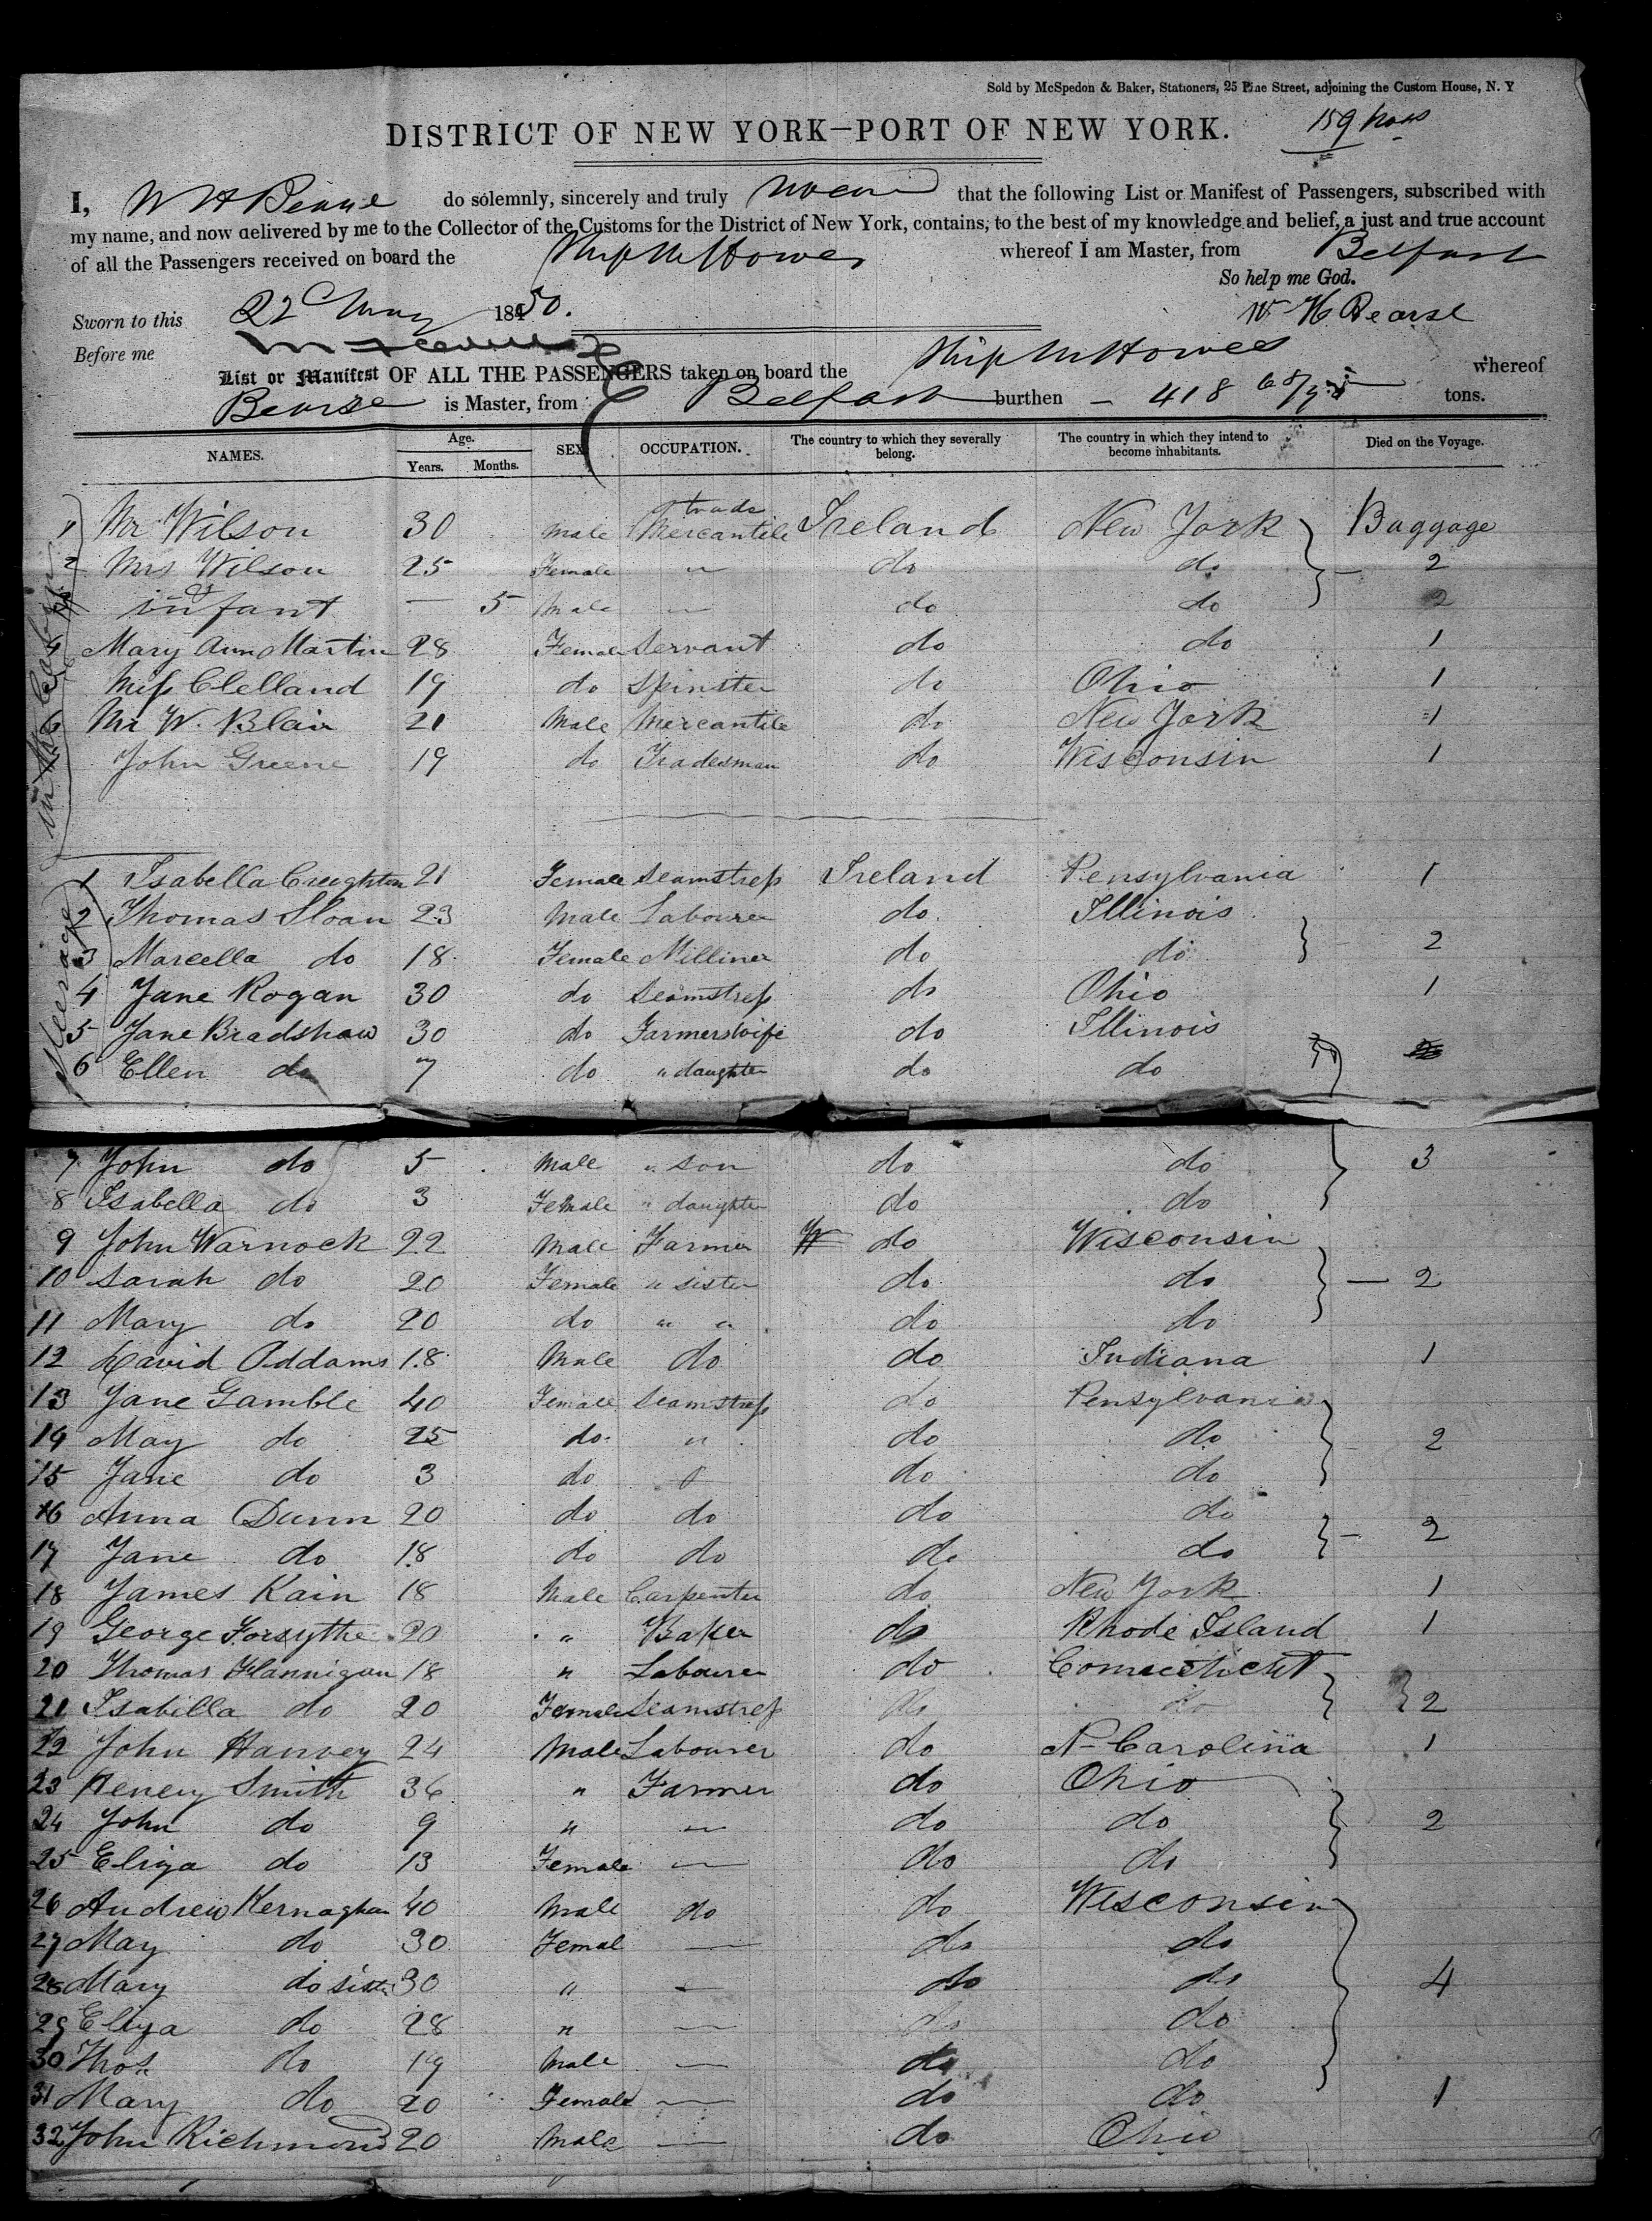 Sold by McSpedon & Baker, Stationers, 25 Pine Street, adjoining the Custom House, N. Y
DISTRICT OF NEW YORK—PORT OF NEW YORK.
159
I, W H Bearse do solemnly, sincerely and truly swear that the following List or Manifest of Passengers, subscribed with
my name, and now delivered by me to the Collector of the Customs for the District of New York, contains, to the best of my knowledge and belief, a just and true account
of all the Passengers received on board the Ship Howes whereof I am Master, from Belfast
So help me God.
Sworn to this 22 May 1850. W H Bearse
Before me
List or Manifest OF ALL THE PASSENGERS taken on board the Ship Howes whereof
Bearse is Master, from Belfast burthen — 418 tons.
NAMES. Age. Years. Months. SEX OCCUPATION. The country to which they severally belong. The country in which they intend to become inhabitants. Died on the Voyage.
1 Mr Wilson 30 Male Mercantile trade Ireland New York Baggage
2 Mrs Wilson 25 Female " do do 2
infant — 5 Male — do do 2
4 Mary Ann Martin 28 Female Servant do do 1
Miss Clelland 19 do Spinster do Ohio 1
6 Mr W. Blair 21 Male Mercantile do New York 1
John Greene 19 do Tradesman do Wisconsin 1
in the Cabin
Steerage
1 Isabella Creighton 21 Female Seamstress Ireland Pensylvania 1
2 Thomas Sloan 23 Male Labourer do Illinois
3 Marcella do 18 Female Milliner do do 2
4 Jane Rogan 30 do Seamstress do Ohio 1
5 Jane Bradshaw 30 do Farmers wife do Illinois
6 Ellen do 7 do " daughter do do
7 John do 5 Male " son do do 3
8 Isabella do 3 Female " daughter do do
9 John Warnock 22 Male Farmer do Wisconsin
10 Sarah do 20 Female " sister do do — 2
11 Mary do 20 do " " do do
12 David Addams 18 Male do do Indiana 1
13 Jane Gamble 40 Female Seamstress do Pensylvania
14 May do 25 do " do do — 2
15 Jane do 3 do do do
16 Anna Dunn 20 do do do do
17 Jane do 18 do do do do — 2
18 James Kain 18 Male Carpenter do New York 1
19 George Forsythe 20 " Baker do Rhode Island 1
20 Thomas Flannigan 18 " Labourer do Connecticut
21 Isabella do 20 Female Seamstress do do 2
22 John Hanvey 24 Male Labourer do N- Carolina 1
23 Henery Smith 36 " Farmer do Ohio
24 John do 9 " — do do 2
25 Eliza do 13 Female — do do
26 Andrew Kernaghan 40 Male do do Wisconsin
27 May do 30 Femal — do do
28 Mary do sister 30 " — do do 4
29 Eliza do 28 " — do do
30 Thos. do 19 Male — do do
31 Mary do 20 Female — do do 1
32 John Richmond 20 Male — do Ohio